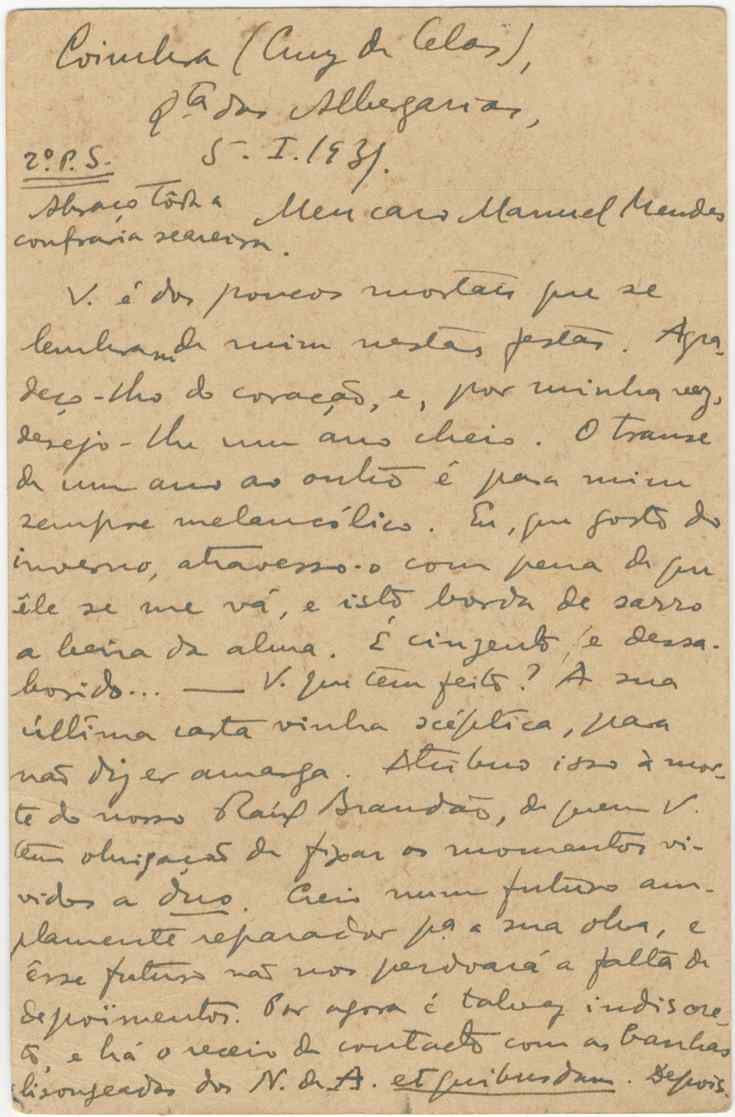 Coimbra (Cruz de Celas),
Qta das Albergarias,
5. I. 1931.
2º. P. S.
Abraço tôda a
confraria seareira.
Meu caro Manuel Mendes
V. é dos poucos mortais que se
lembram de mim nestas festas. Agra-
deço-lho do coração, e, por minha vez,
desejo-lhe um ano cheio. O transe
de um ano ao outro é para mim
sempre melancólico. Eu, que gosto do
inverno, atravesso-o com pena de que
êle se me vá, e isto borda de sarro
a beira da alma. É cinzento, e dessa-
borido... — V. que tem feito? A sua
última carta vinha scéptica, para
não dizer amarga. Atribuo isso à mor-
te do nosso Raúl Brandão, de quem V.
tem obrigação de fixar os momentos vi-
vidos a duo. Creio num futuro am-
plamente reparador pª a sua obra, e
êsse futuro não nos perdoará a falta de
depoïmentos. Por agora é talvez indiscre-
to, e há o receio de contacto com as banhas
lisongeadas dos N. de A. et quibusdam. Depois.